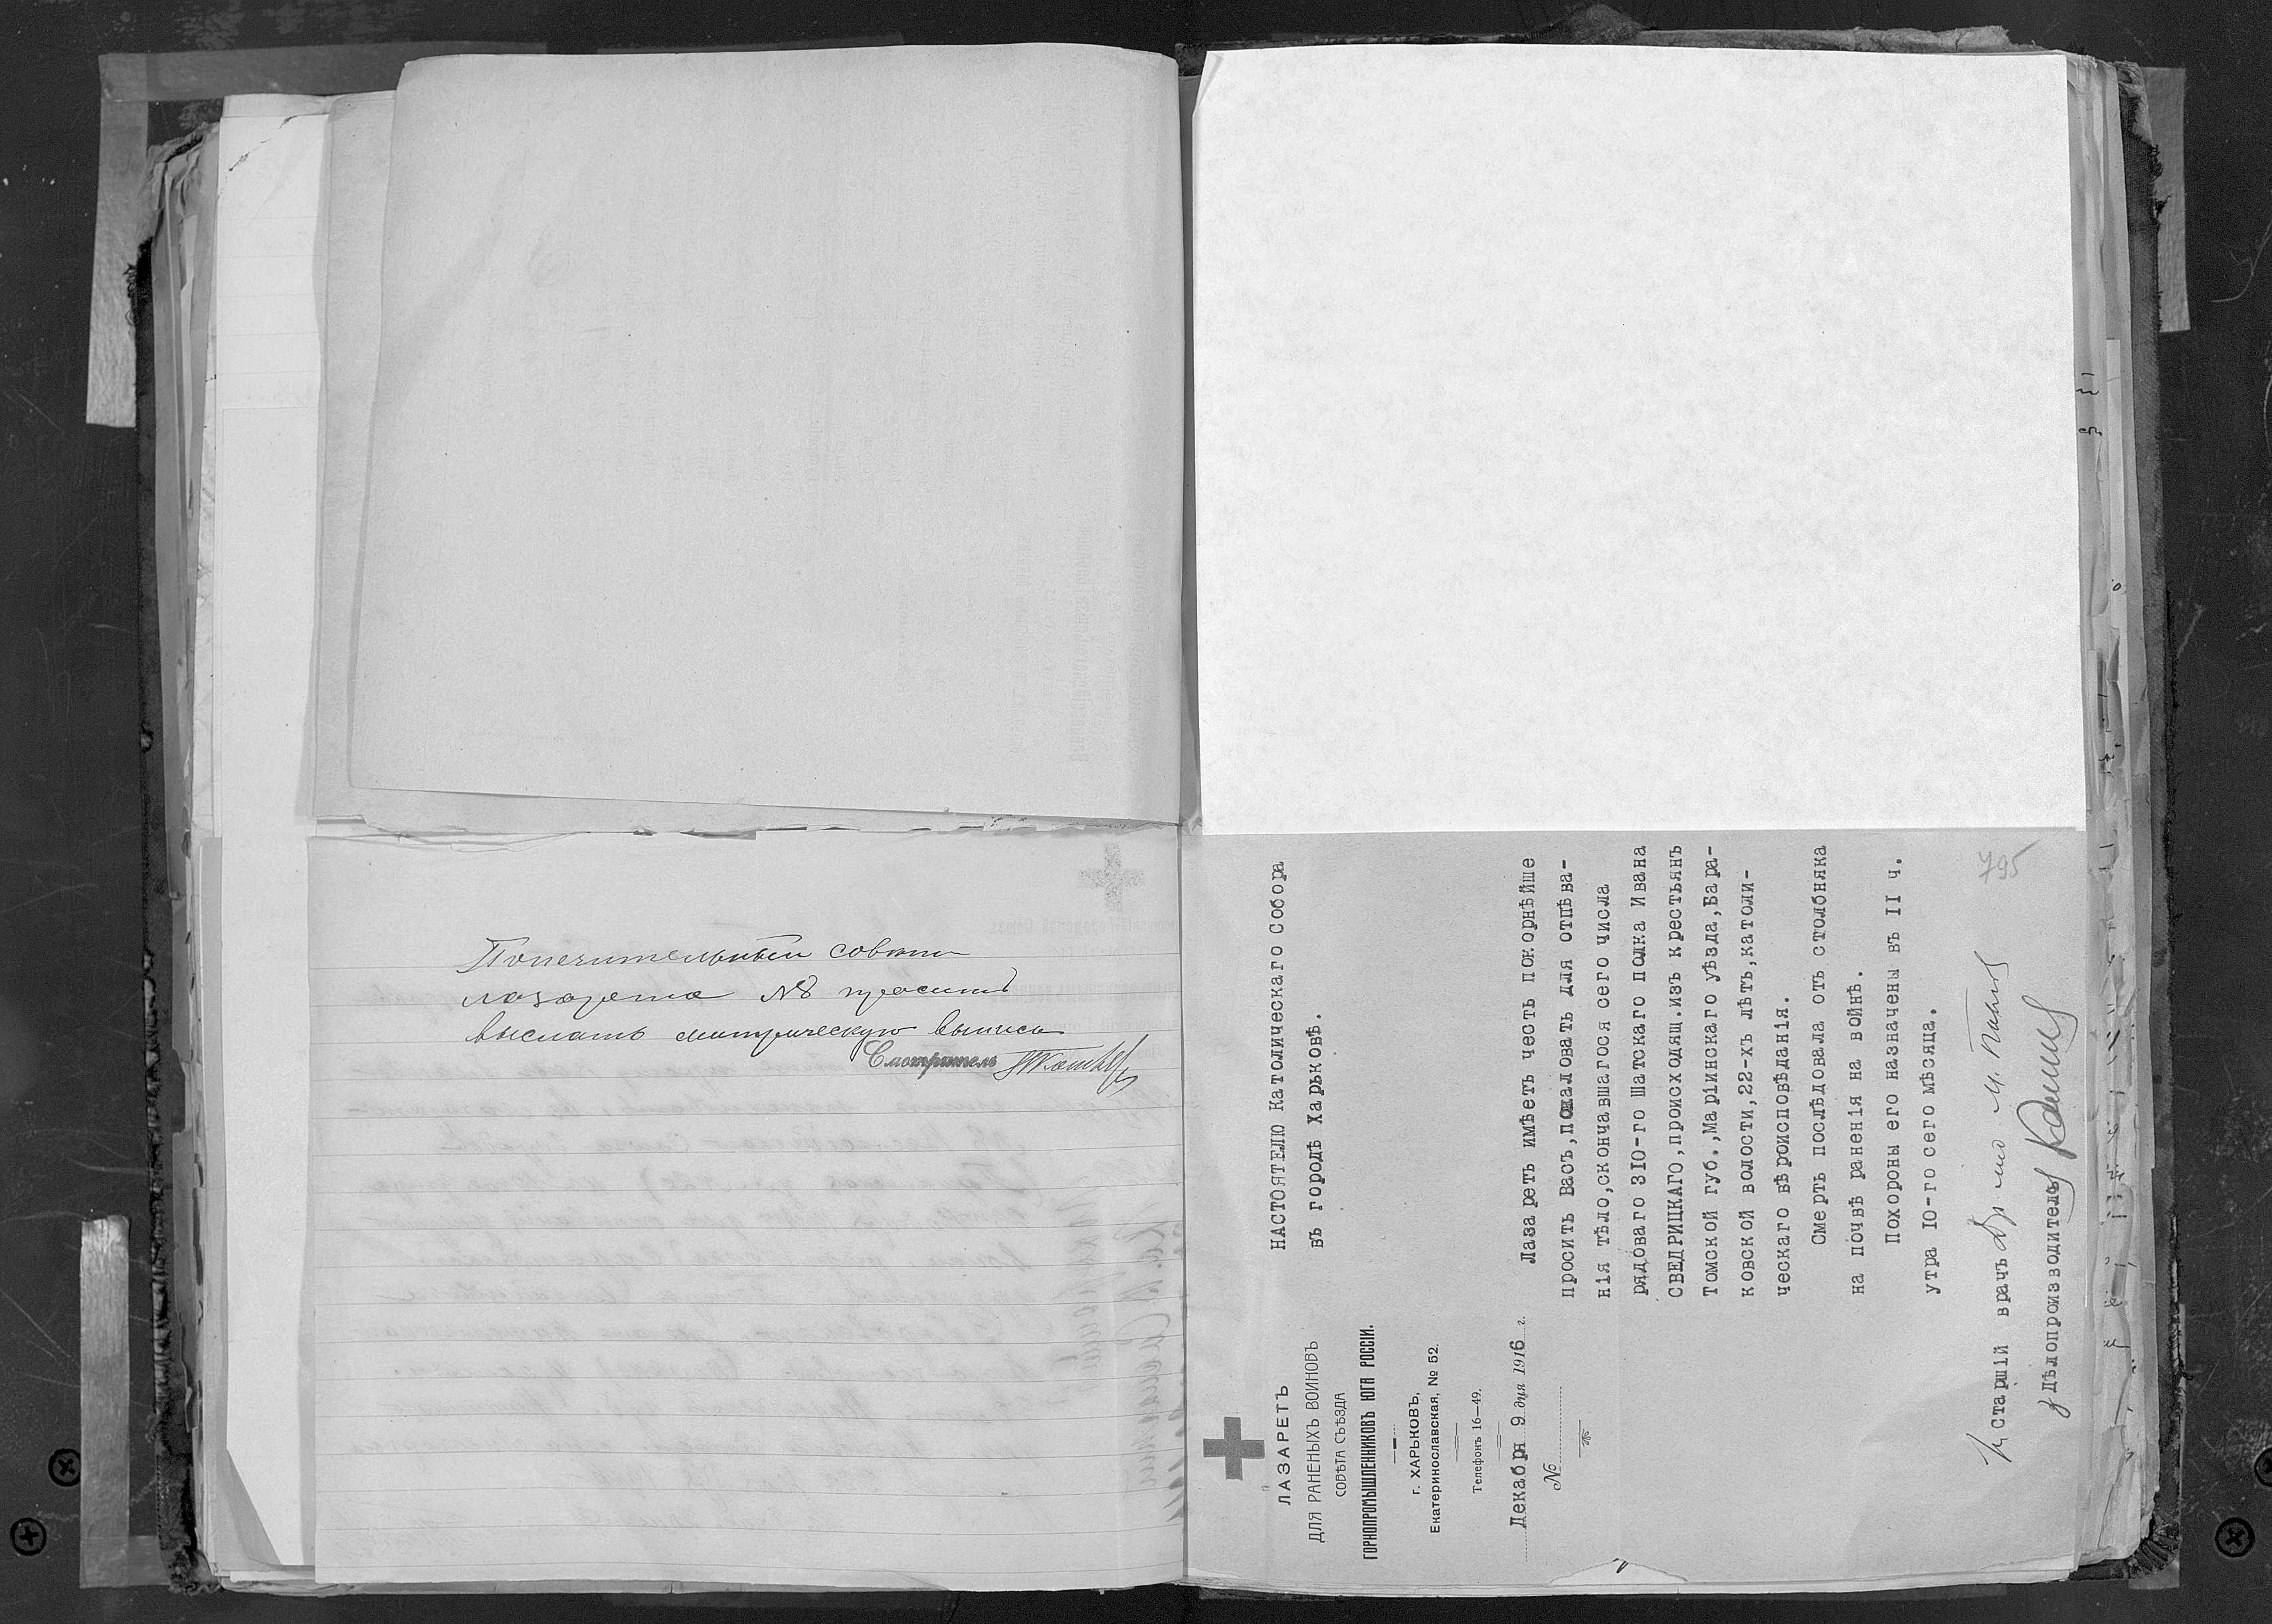 Попечительный совѣтъ
лазарета №8 проситъ
выслать метрическую выпись
Смотритель
ЛАЗАРЕТЪ
ДЛЯ РАНЕНЫХЪ ВОИНОВЪ
СОВѢТА СЪѢЗДА
ГОРНОПРОМЫШЛЕННИКОВЪ ЮГА РОССІИ.
г. ХАРЬКОВЪ,
Екатеринославская, № 52.
Телефонъ 16—49.
Декабря 9 дня 1916 г.
№
НАСТОЯТЕЛЮ КАТОЛИЧЕСКАГО СОБОРА
ВЪ ГОРОДѢ ХАРЬКОВѢ.
Лазаретъ имѣетъ честь покорнѣйше
просить Васъ,пожаловать для отпѣва-
нія тѣло,скончавшагося сего числа
рядоваго 310-го Шатскаго полка Ивана
СВЕДРИЦКАГО,происходящ.изъ крестьянъ
Томской губ.,Маріинскаго уѣзда,Бара-
ковской волости,22-хъ лѣтъ,католи-
ческаго вѣроисповѣданія.
Смерть послѣдовала отъ столбняка
на почвѣ раненія на войнѣ.
Похороны его назначены въ II ч.
утра 10-го сего мѣсяца.
Старшій врачъ
Дѣлопроизводитель
795